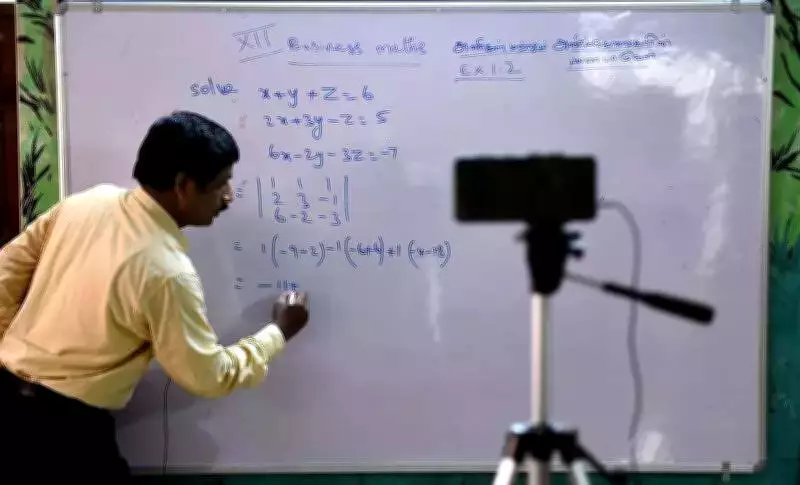 XII Business maths
Ex 1.2
Solve x+y+z=6
2x+3y-z=5
6x-2y-3z=-7
= | 1 1 1 |
| 2 3 -1 |
| 6 -2 -3 |
= 1(-9-2)-1(-6+6)+1(-4-18)
= -11+